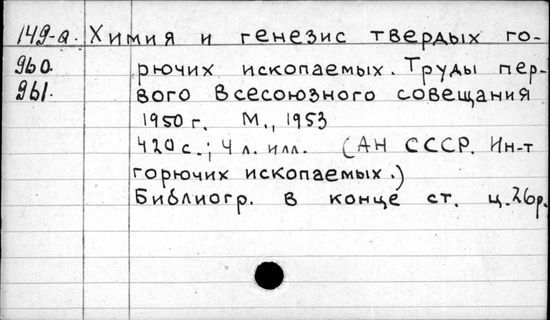 149-а. Химия и генезис твердых го-
960. рючих ископаемых. Труды пер-
961. вого Всесоюзного совещания
1950 г. М., 1953
420 с.; 4 л. илл. (АН СССР. Ин-т
горючих ископаемых.)
Библиогр. в конце ст. ц. 26 р.